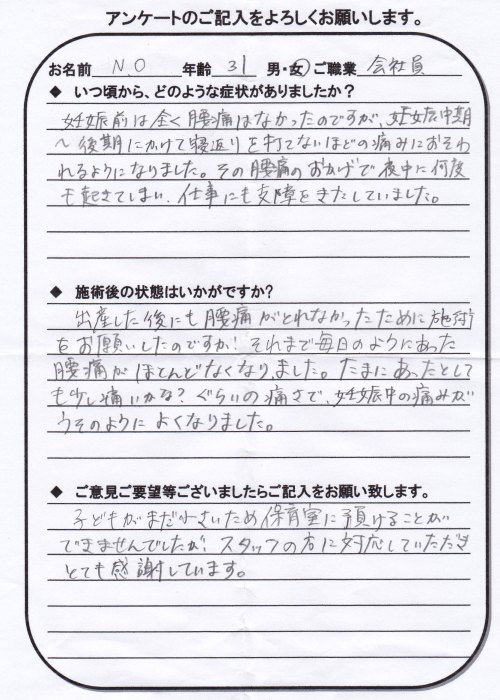 アンケートのご記入をよろしくお願いします。
お名前 N.O 年齢 31 男・女 ご職業 会社員
◆ いつ頃から、どのような症状がありましたか？
妊娠前は全く腰痛はなかったのですが、妊娠中期
～後期にかけて寝返りを打てないほどの痛みにおそわ
れるようになりました。その腰痛のおかげで夜中に何度
も起きてしまい、仕事にも支障をきたしていました。
◆ 施術後の状態はいかがですか？
出産した後にも腰痛がとれなかったために施術
をお願いしたのですが、それまで毎日のようにあった
腰痛がほとんどなくなりました。たまにあったとして
も少し痛いかな？ぐらいの痛さで、妊娠中の痛みが
うそのようによくなりました。
◆ ご意見ご要望等ございましたらご記入をお願い致します。
子どもがまだ小さいため保育室に預けることが
できませんでしたが、スタッフの方に対応していただき
とても感謝しています。